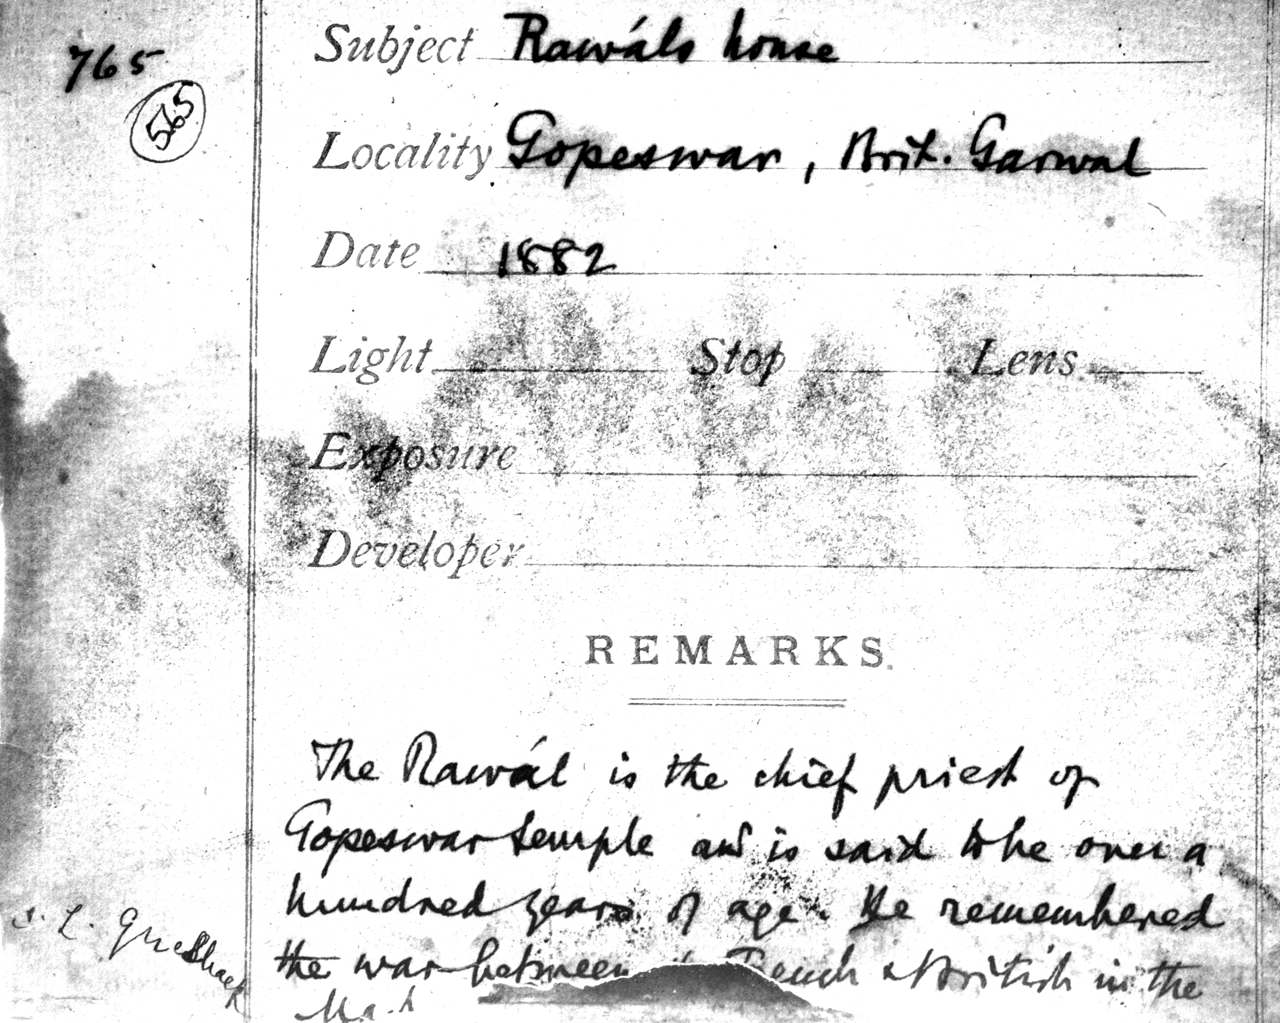 765
565
Subject Rawáls house
Locality Gopeswar, Brit. Garwal
Date 1882
Light Stop Lens
Exposure
Developer
REMARKS.
The Rawál is the chief priest of
Gopeswar temple and is said to be over a
hundred years of age. He remembered
the war between French & British in the